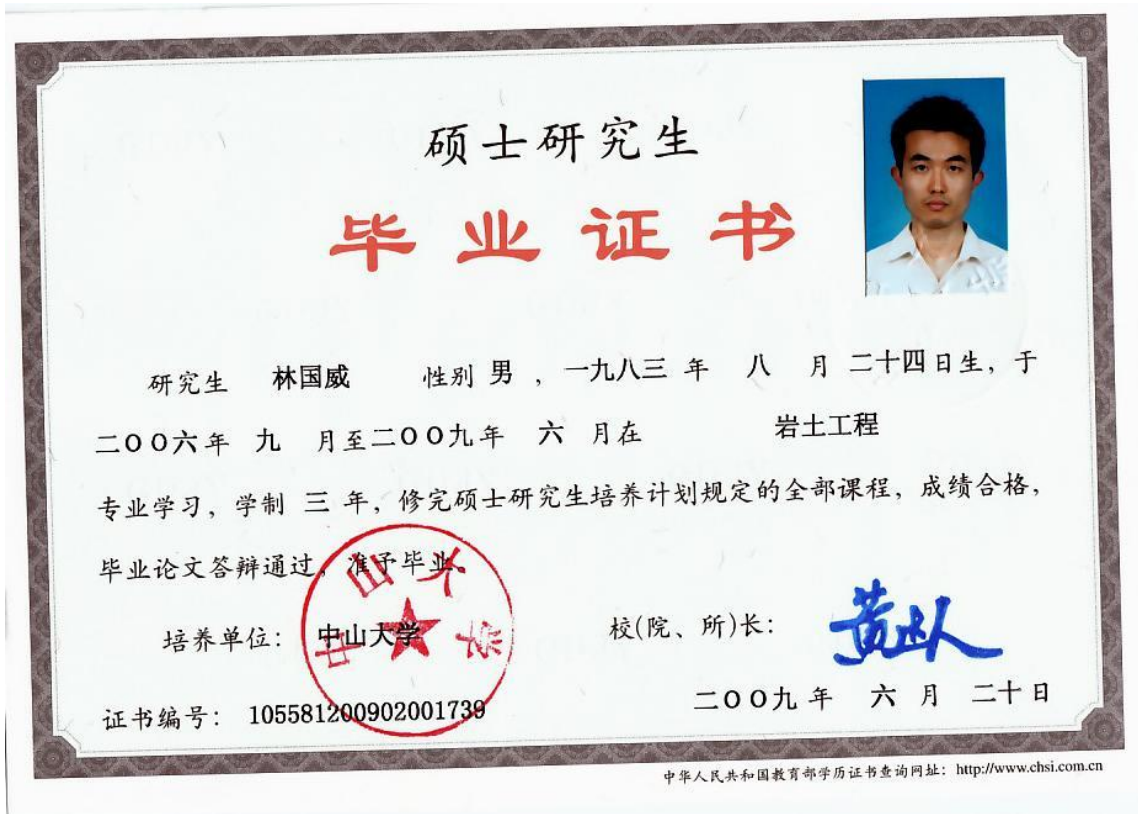 硕士研究生
毕业证书
研究生 林国威 性别 男 ，一九八三 年 八 月 二十四日生，于
二〇〇六年 九 月至二〇〇九年 六 月在 岩土工程
专业学习，学制 三 年，修完硕士研究生培养计划规定的全部课程，成绩合格，
毕业论文答辩通过，准予毕业。
中山大学
培养单位： 中山大学
校(院、所)长： 黄达人
证书编号： 105581200902001739
二〇〇九 年 六 月 二十日
中华人民共和国教育部学历证书查询网址：http://www.chsi.com.cn